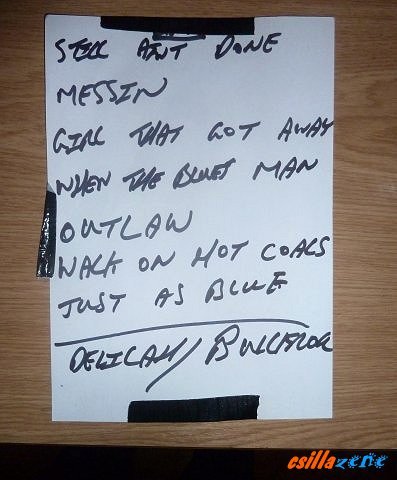 STILL AINT DONE
MESSIN
GIRL THAT GOT AWAY
WHEN THE BLUES MAN
OUTLAW
WALK ON HOT COALS
JUST AS BLUE
BULLFROG
csillazene